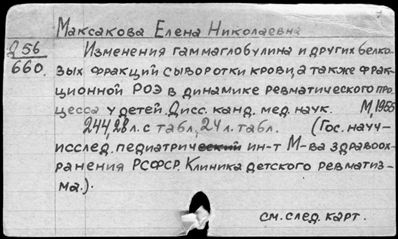 Максакова Елена Николаевна
Д 56
660.
Изменения гаммаглобулина и других белко-
вых фракций сыворотки крови, а также фрак-
ционной РОЭ в динамике ревматического про-
цесса у детей. Дисс. канд. мед. наук. М, 1955
244, 28 л. с табл, 24 л. табл. (Гос. науч-
исслед. педиатрический ин-т М-ва здравоох-
ранения РСФСР. Клиника детского ревматиз-
ма.).
см. след. карт.